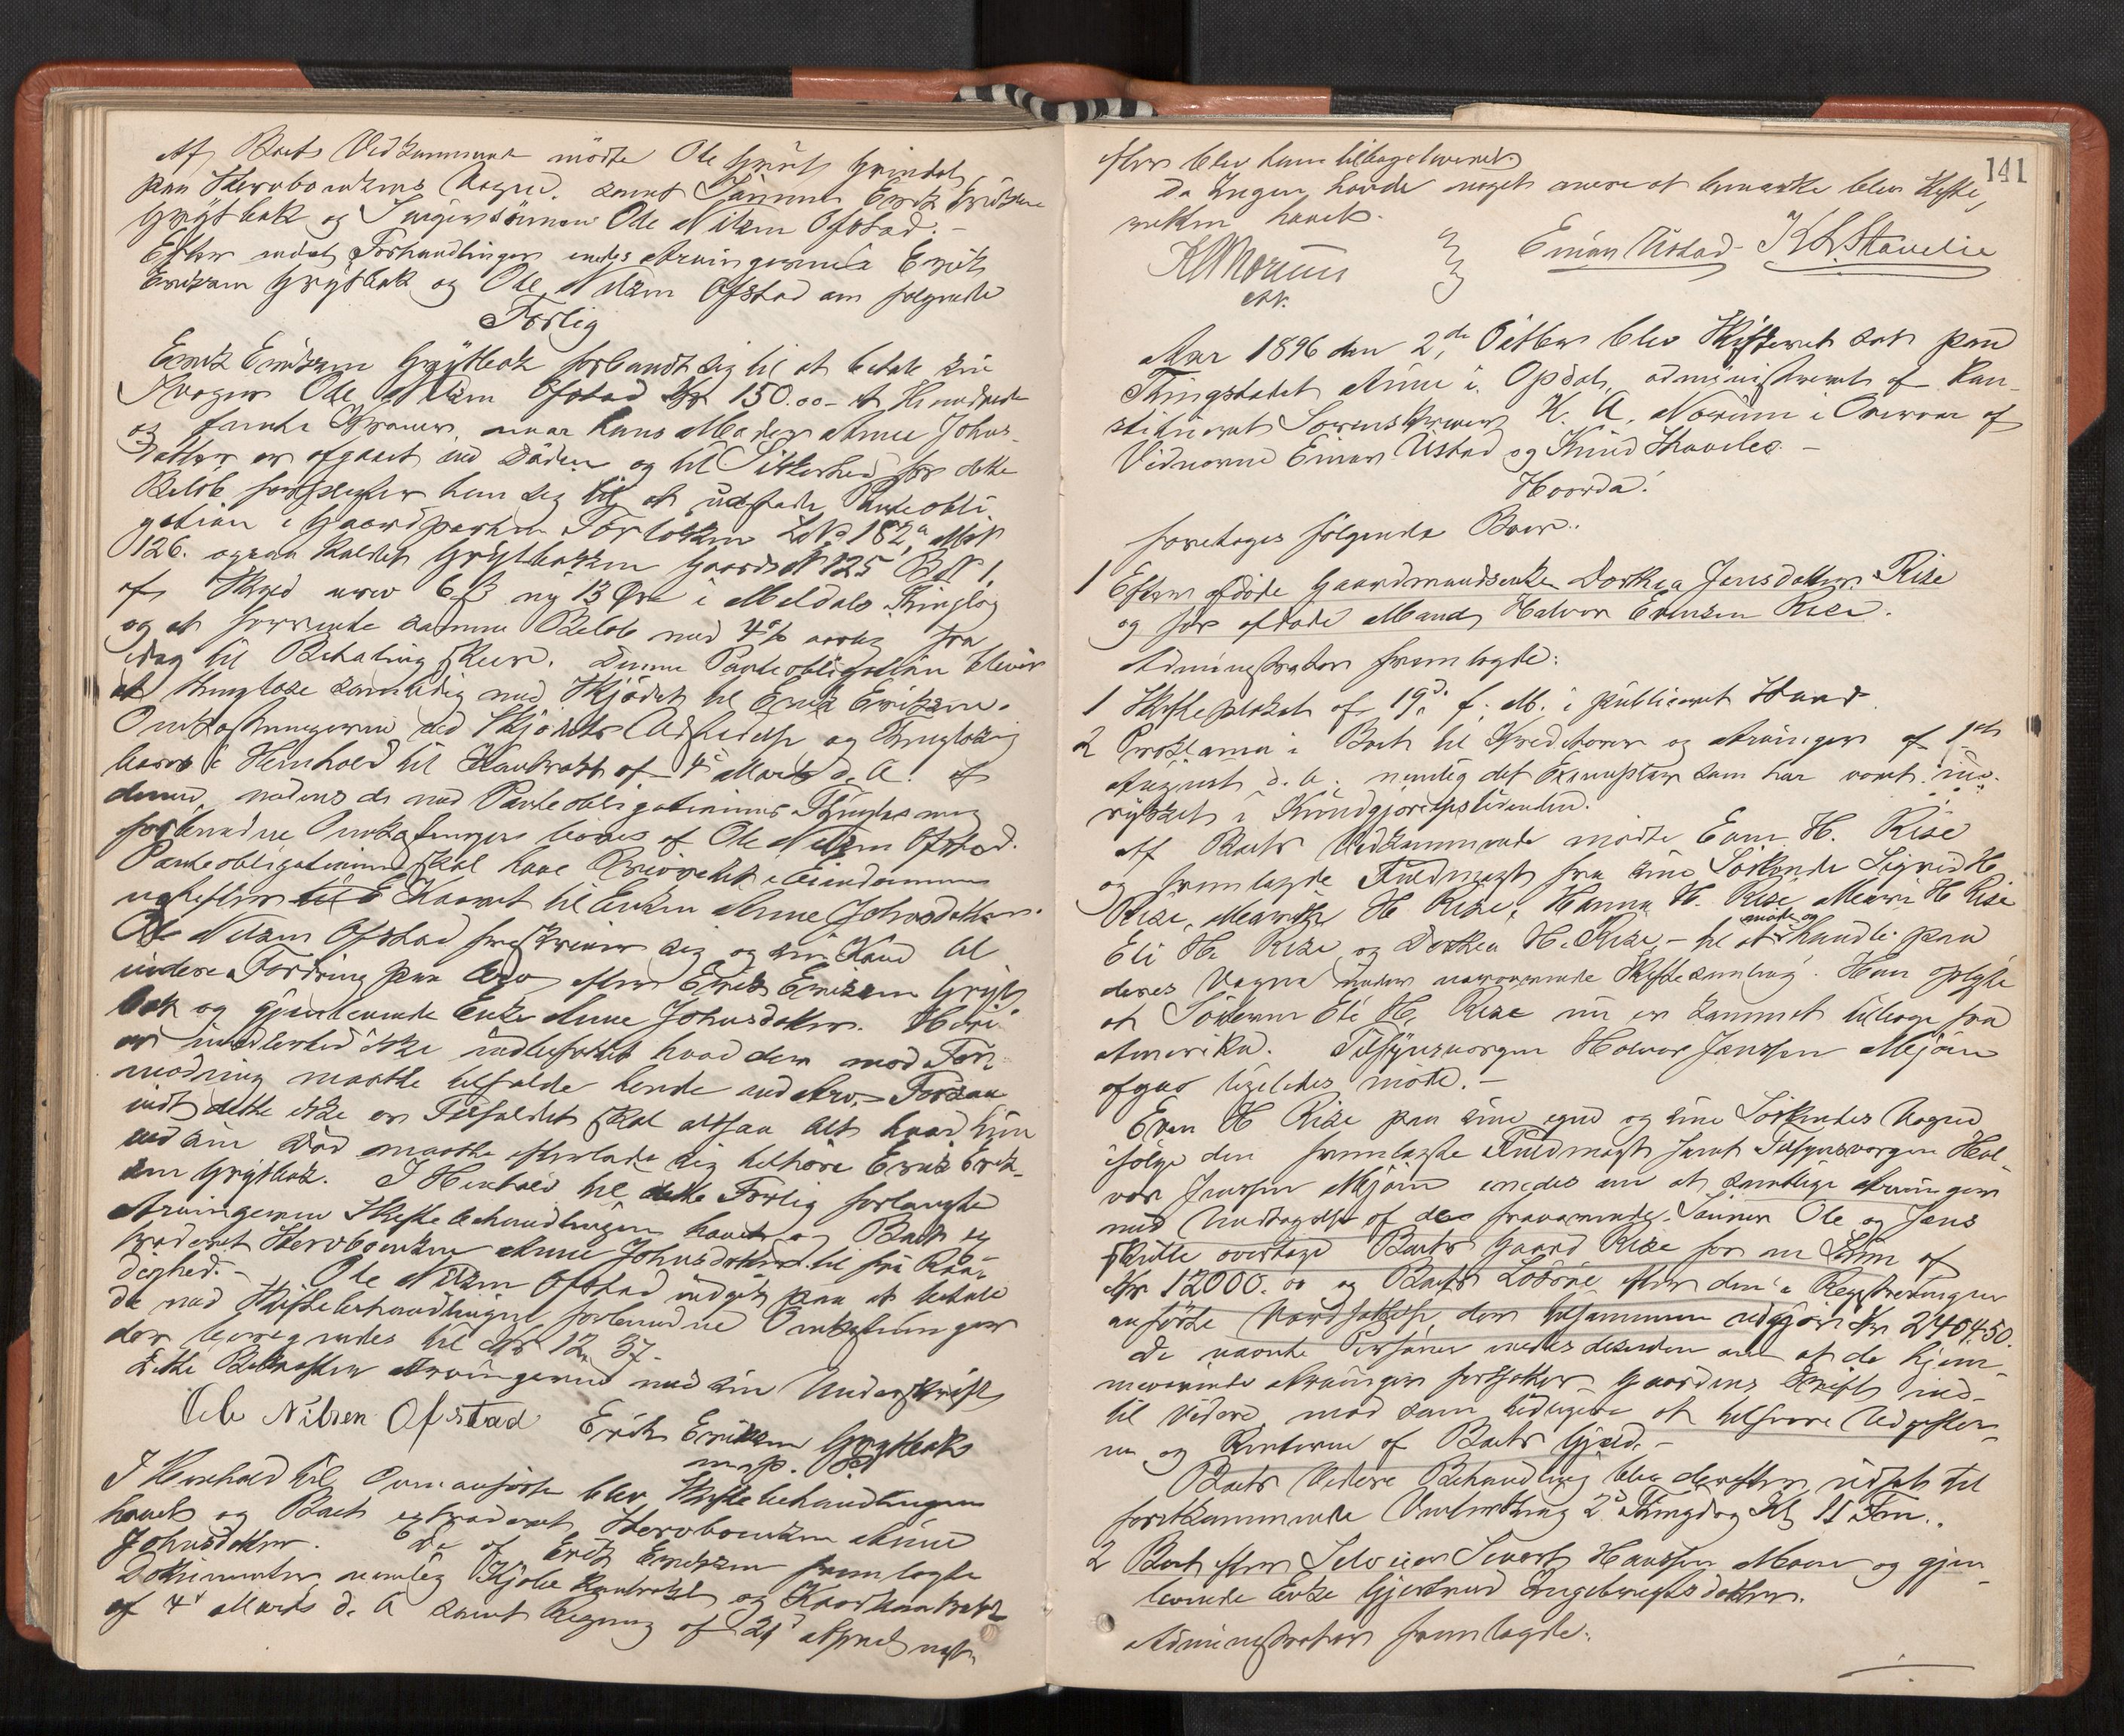 Af Boets Vedkommende mödte Ole Grindal
paa Stervboenkens Vegne samt Sönnen Erik Eriksen
Grytbak og Svigersönnen Ole Nilsen Ofstad. -
Efter endel Forhandlinger enedes Arvingerne Erik
Eriksen Grytbak og Ole Nilsen Ofstad om følgende
Forlig
Erik Eriksen Grytbak forbandt sig til at betale sin
Svoger Ole Nilsen Ofstad Kr 150.00 - et Hundrede
og femti Kroner, naar hans Moder Anne Johns-
datter er afgaaet ved Döden og til Sikkerhed for dette
Belöb forpligter han sig til at udstede Panteobli-
gation i Gaardparten LNo 182a, Mat
126. ogsaa kaldet Grytbakken Gaards No 125 BN 1,
af Skyld 6 ny 13 Øre i Meldals Thinglag
og at forrente samme Belöb med 4% aarlig fra
idag til Betaling skeer. Denne Panteobligation bliver
at thinglæse samtidig med Skjödet til Erik Eriksen.
Omkostningerne ved Skjödets Udstedelse og Thinglæsning
bæres i Henhold til Kontrakt af 4de Marts d. A. af
denne, medens de med Panteobligationens Thinglæsning
forbundne Omkostninger bæres af Ole Nilsen Ofstad.
Panteobligationen skal have Prioritet i Eiendommen
næstefter Kaaret til Enken Anne Johnsdatter.
Ole Nilsen Ofstad fraskriver sig og sin Kone al
videre Fordring paa Arv efter Erik Eriksen Gryt-
bak og gjenlevende Enke Anne Johnsdatter. Heri
er imidlertid ikke indbefattet hvad der mod For-
modning maatte tilfalde hende ved Arv. Forsaa-
vidt dette ikke er Tilfældet skal altsaa alt hvad hun
ved sin Död maatte efterlade sig tilhöre Erik Erik-
sen Grytbak. I Henhold til dette Forlig forlangte
Arvingerne Skiftebehandlingen hævet og Boet ex-
traderet Stervboenken Anne Johnsdatter til fri Raa-
dighed. - Ole Nilsen Ofstad indgik paa at betale
de med Skiftebehandlingen forbundne Omkostninger
der beregnedes til Kr 12,37.
Dette Bekræfter Arvingerne med sin Underskrift
Ole Nilsen Ofstad Erik Eriksen Grytbak
m. p.
I Henhold til Ovenanförte blev Skiftebehandlingen
hævet og Boet extraderet Stervboenken Anne
Johnsdatter. De af Erik Eriksen fremlagte
Dokumenter, nemlig Skjöde Kontrakt og Kaarkontrakt
af 4de Marts d. A samt Regning af 21de April næst-
141
efter blev ham tilbageleveret.
Da Ingen havde noget mere at bemærke blev Skifte-
retten hævet.
K A Morum Einar Ustad K L Stavelie
Aar 1896 den 2de, Oktbr blev Skifteret sat paa
Thingstedet Aune i Opdal, administreret af kon-
stitueret Sorenskriver K. A. Morum i Overvær af
Vidnerne Einar Ustad og Knud Stavelie. -
Hvorda:
foretoges følgende Boer:
1 Efter afdöde Gaardmandsenke Dorthea Jensdatter Rise
og för afdöde Mand Halvor Evensen Rise.
Administrator fremlagte:
1 Skifteplakat af 19de f. M. i publiceret Stand
2 Proklama i Boet til Kreditorer og Arvinger af 1ste
August d. A. nemlig det Exemplar som har været ind-
rykket i Kundgjörelsestidenden.
Af Boets Vedkommende mödte Even H. Rise
og fremlagde Fuldmagt fra sine Söskende Sigrid H
Rise, Marith H Rise, Hanna H. Rise, Mari H Rise
Eli H. Rise og Dorthea H. Rise, - til at möde og handle paa
deres Vegne under nærværende Skiftesamling. Han oplyste
at Sösteren Eli H. Rise nu er kommet tilbage fra
Amerika. Tilsynsvergen Halvor Jenssen Mjöen
afgav ligeledes möde. -
Even H Rise paa sine egne og sine Söskendes Vegne
ifölge den fremlagte Fuldmagt samt Tilsynsvergen Hal-
vor Jenssen Mjöen enedes om at samtlige Arvinger
med Undtagelse af den fraværende Sönner Ole og Jens
skulle overtage Boets Gaard Rise for en Sum af
Kr 12000.00 og Boets Lösöre efter den i Registreringen
anförte Værdsættelse der tilsammen udgjör Kr 2404.50.
De nævnte Personer enedes desuden om at de hjem-
meværende Arvinger fortsætter Gaardens Drift ind-
til videre mod som tidligere at tilsvare Udgifter-
ne og Renterne af Boets Gjæld. -
Boets videre Behandling blev derefter udsat til
förstkommende Vinterthing 2d Thingdag Kl 11 Fm.
2 Boet efter Selveier Sivert Hanssen Moen og gjen-
levende Enke Gjertrud Ingebrigtsdatter.
Administrator fremlagde: